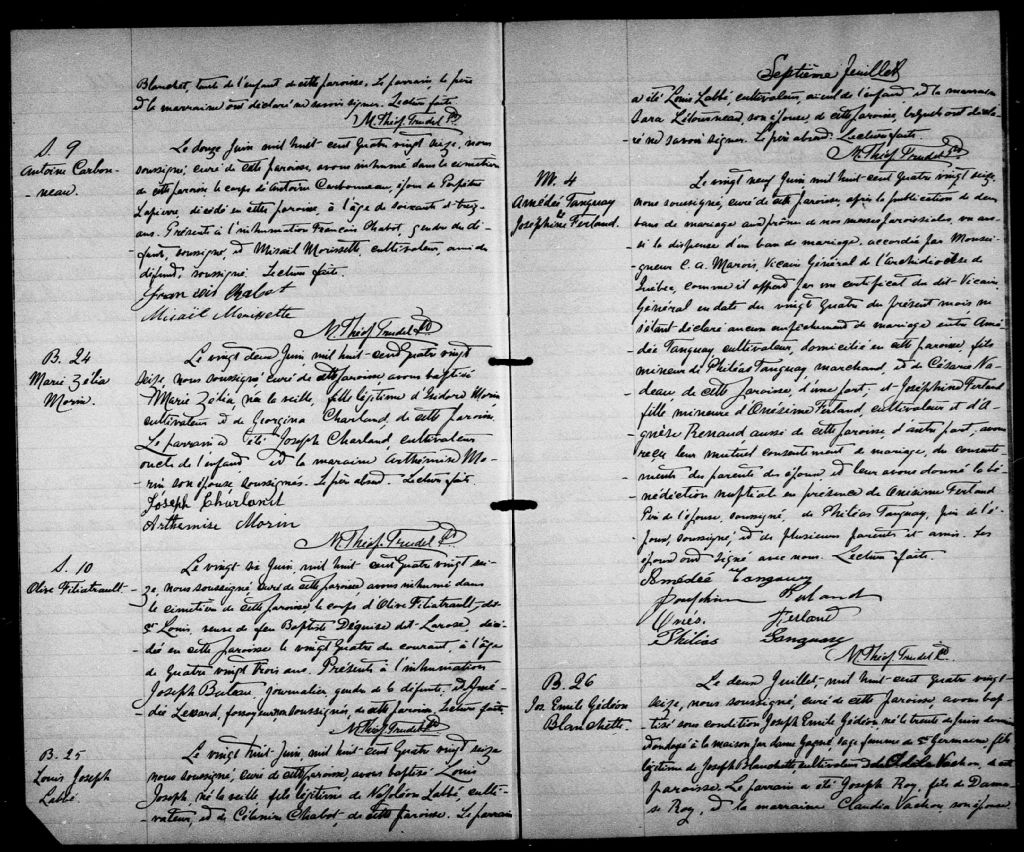 Blanchet, tante de l'enfant de cette paroisse. Le parrain, le père
et la marraine ont déclaré ne savoir signer. Lecture faite.
N. Théop. Trudel Ptr.
S. 9
Antoine Carbon-
neau.
Le douze Juin mil huit-cent quatre vingt seize, nous
soussigné, curé de cette paroisse, avons inhumé dans le cimetière
de cette paroisse le corps d'Antoine Carbonneau, époux de
Lapierre, décédé en cette paroisse, à l'âge de soixante et treize
ans. Présents à l'inhumation François Chabot, gendre du dé-
funt, soussigné, et Misaël Morissette, cultivateur, ami du
défunt, soussigné. Lecture faite.
François Chabot
Misaël Morissette
N. Théop. Trudel Ptr.
B. 24
Marie Zélia
Morin.
Le vingt deux Juin, mil huit-cent quatre vingt
seize, nous soussigné curé de cette paroisse avons baptisé
Marie Zélia née la veille, fille légitime d'Isidore Morin
cultivateur et de Georgina Charland, de cette paroisse.
Le parrain a été Joseph Charland, cultivateur
oncle de l'enfant et la marraine Arthémise Mo-
rin son épouse soussignés. Le père absent. Lecture faite.
Joseph Charland
Arthemise Morin
N. Théop. Trudel Ptr.
S. 10
Olive Filiatrault
Le vingt six Juin, mil huit cent quatre vingt sei-
ze, nous soussigné, curé de cette paroisse, avons inhumé dans
le cimetière de cette paroisse le corps d'Olive Filiatrault-dit
St Louis, veuve de feu Baptiste Déguise dit Larose, décé-
dée en cette paroisse le vingt quatre du courant, à l'âge
de quatre vingt trois ans. Présents à l'inhumation
Joseph journalier, gendre de la défunte, et Amé-
dée Lessard, fossoyeur soussignés, de cette paroisse. Lecture faite
N. Théop. Trudel Ptr.
B. 25
Louis Joseph
Labbé
Le vingt huit Juin, mil huit cent quatre vingt seize
nous soussigné, curé de cette paroisse, avons baptisé Louis
Joseph, né la veille, fils légitime de Napoléon Labbé, culti-
vateur, et de Célanire Chabot, de cette paroisse. Le parrain
Septième feuillet
a été Louis Labbé, cultivateur, aïeul de l'enfant, et la marraine
Sara Létourneau, son épouse, de cette paroisse, lesquels ont décla-
ré ne savoir signer. Le père absent. Lecture faite.
N. Théop. Trudel Ptr.
M. 4
Amédée Tanguay
&
Joséphine Ferland.
Le vingt neuf Juin, mil huit-cent quatre vingt seize,
nous soussigné, curé de cette paroisse, après la publication de deux
bans de mariage au prône de nos messes paroissiales, vu aus-
si la dispense d'un ban de mariage accordée par Monsei-
gneur C. A. Marois, Vicaire Général de l'Archidiocèse de
Québec, comme il appert par un certificat du dit Vicaire
Général en date du vingt quatre du présent mois, ne
s'étant déclaré aucun empêchement de mariage entre Amé-
dée Tanguay cultivateur, domicilié en cette paroisse, fils
mineur de Philéas Tanguay marchand, et de Césarie Na-
deau de cette paroisse, d'une part; et Joséphine Ferland
fille mineure d'Onésime Ferland, cultivateur et d'A-
gnès Renaud aussi de cette paroisse, d'autre part, avons
reçu leur mutuel consentement de mariage, du consente-
ments des parents des époux et leur avons donné la bé-
nédiction nuptiale en présence de Onésime Ferland
Père de l'épouse, soussigné, de Philéas Tanguay, père de l'é-
poux, soussigné, et de plusieurs parents et amis. Les
époux ont signé avec nous. Lecture faite.
Amédée Tanguay
Josephine Ferland
Onés. Ferland
Philias Tanguay
N. Théop. Trudel Ptr.
B. 26
Jos. Emile Gédéon
Blanchette.
Le deux Juillet, mil huit-cent quatre vingt-
seize, nous soussigné, curé de cette paroisse, avons bap-
tisé sous condition Joseph Emile Gédéon né le trente de juin dernier
et ondoyé à la maison par dame Gagné, sage femme de St Germaine, fils
légitime de Joseph Blanchette, cultivateur et de Vachon, de cette
paroisse. Le parrain a été Joseph Roy, fils de Dama-
se Roy, et la marraine Claudia Vachon, son épouse